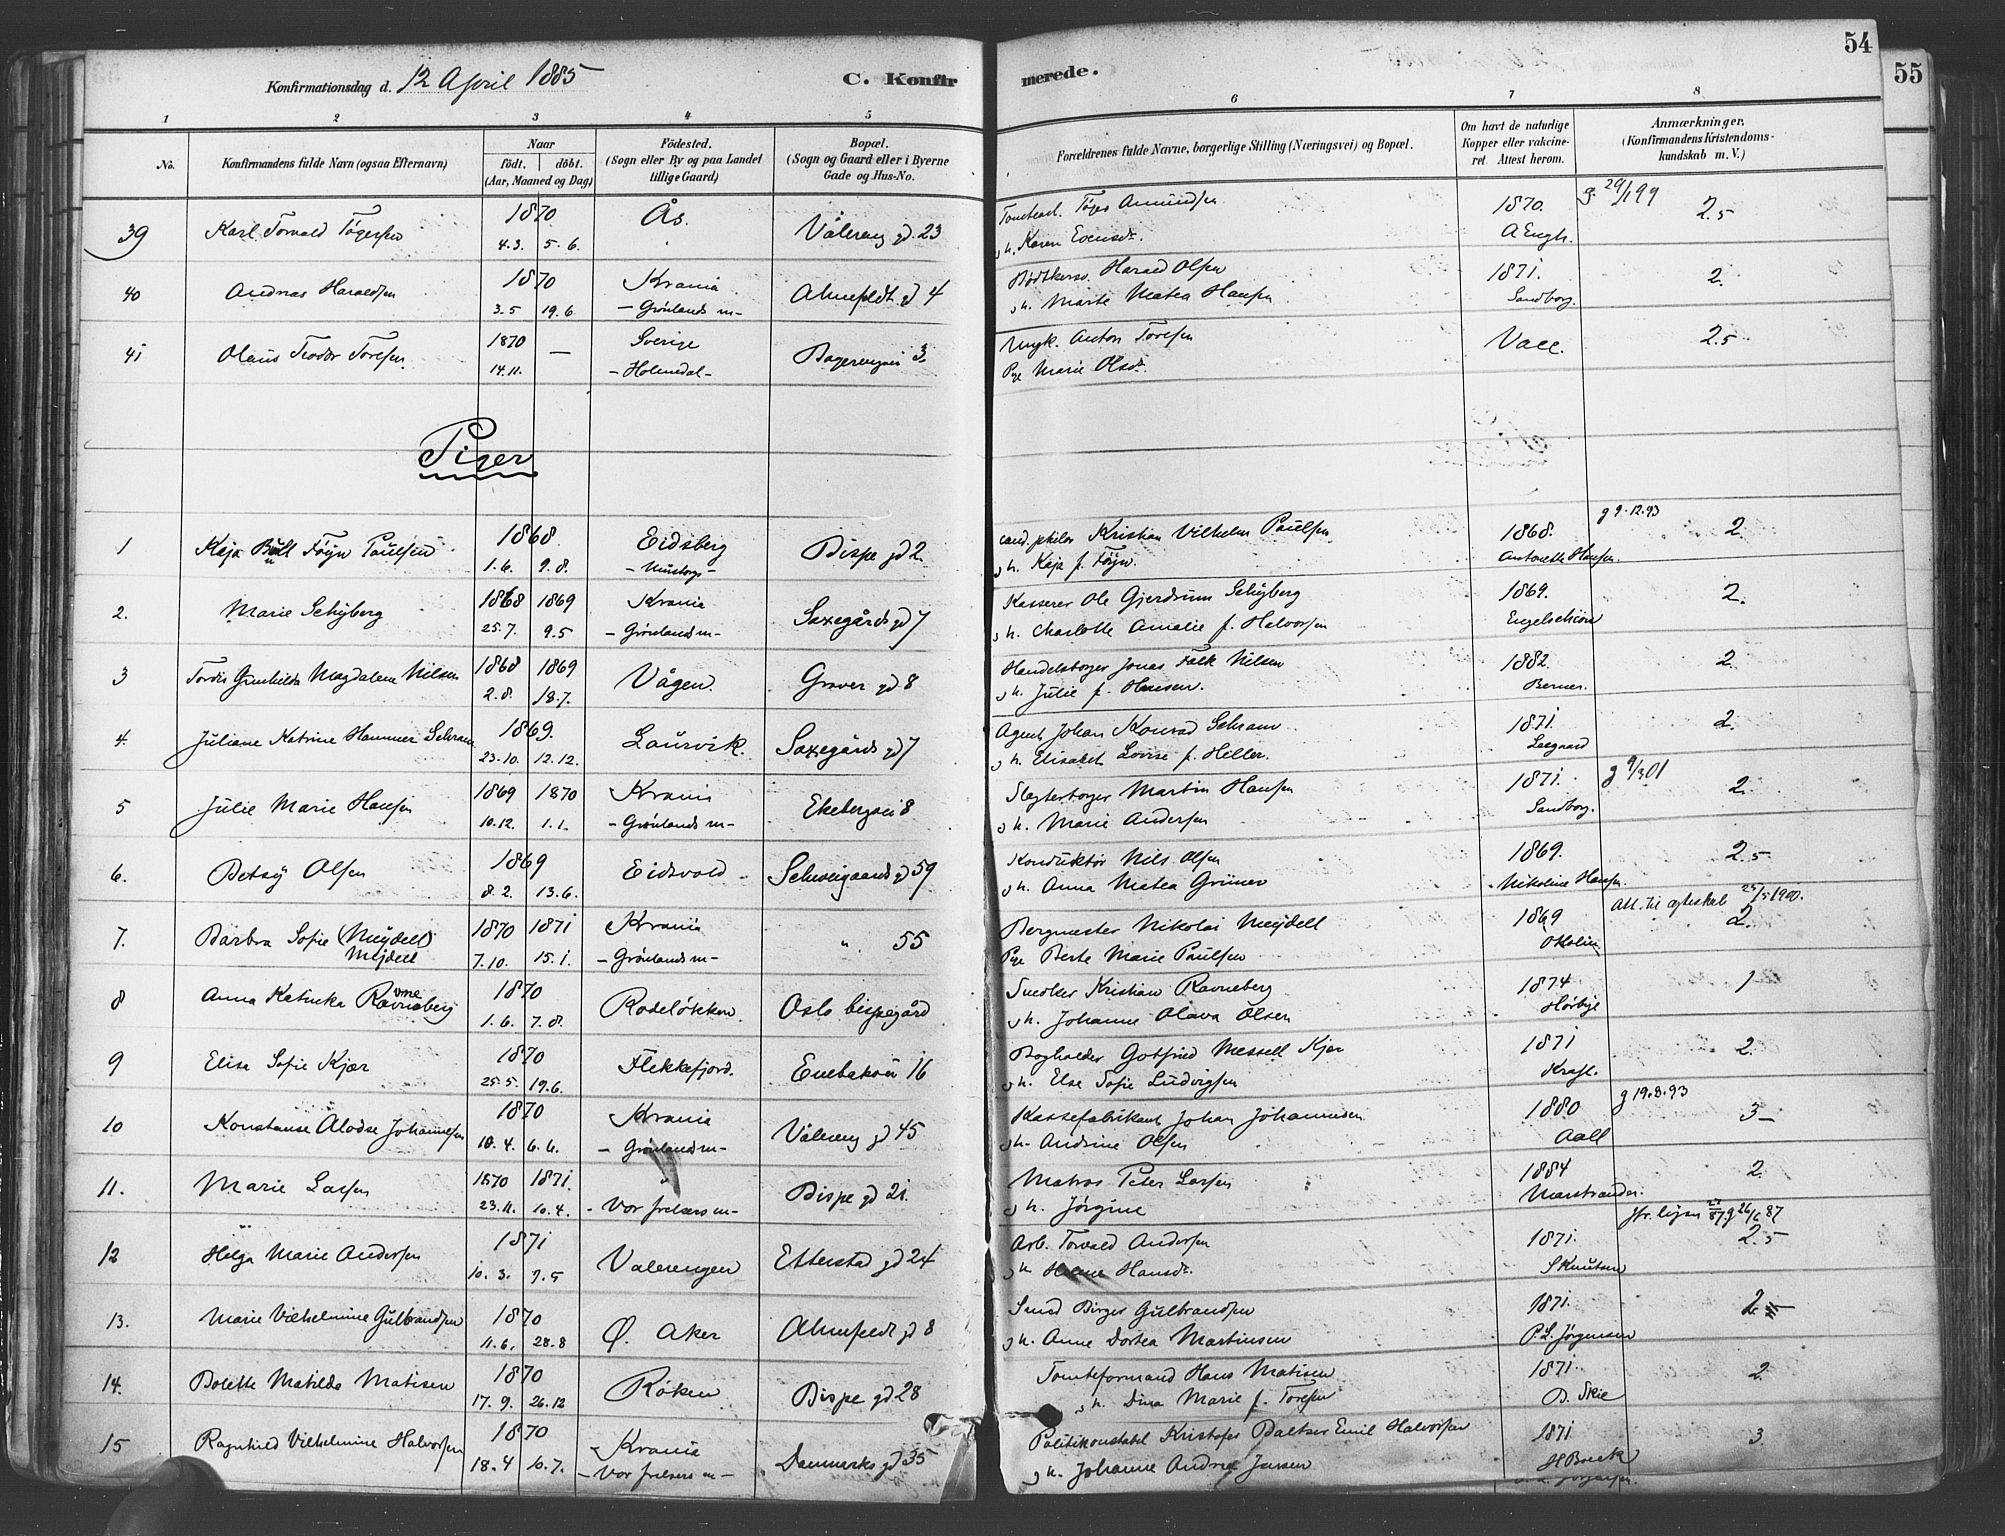 54
55
Konfirmationsdag d. 12 April 1885
C. Konfirmerede.
1 2 3 4 5 6 7 8
No.
Konfirmandens fulde Navn (ogsaa Efternavn)
Naar
födt. döbt.
(Aar, Maaned og Dag)
Födested.
(Sogn eller By og paa Landet tillige Gaard)
Bopæl.
(Sogn og Gaard eller i Byerne Gade og Hus-No.
Forældrenes fulde Navne, borgerlige Stilling (Næringsvei) og Bopæl.
Om havt de naturlige Kopper eller vakcineret. Attest herom.
Anmærkninger.
(Konfirmandens Kristendomskundskab m. V.)
39 Karl Torvald Tøgersen 1870 Ås. Vålereng gd. 23 Tøger Amundsen 1870. g. 29/1 99 2.5
4.3. 5.6. og h. Karen Evensdr. A Engh.
40 Andrias Haraldsen 1870 Krania Ahnefeldt gd 4 Bødtkersv. Harald Olsen 1871. 2.
3.5 19.6. - Grønlands m - og h. Marte Matea Hansen Sandborg.
41 Olaus Teodor Toresen 1870 — Sverige 3 Ungk. Anton Toresen Vacc. 2.5
14.11. - Holmedal - Pge Marie Olsdr.
Piger
1 Kaja Bull Føyn Paulsen 1868 Eidsberg Bispe gd 2 cand. philos Kristian Vilhelm Paulsen 1868. g 9.12.93 2.
1.6. 9.8. og h. Kaja f. Føyn. Antonette Hansen.
2. Marie Schyberg 1868 1869 Krania Saxegårds gd 7 Kasserer Ole Gjerdrum Schyberg 1869. 2.
25.7. 9.5 - Grønlands m - og h. Charlotte Amalie f. Halvorsen Engelschiøn
3 Tordis Gunhilda Magdalene Nilsen 1868 1869 Vågen. Grøver gd 8 Handelsborger Jonas Falk Nilsen 1882. 2.
2.8. 18.7. og h. Julie f. Hansen. Berner.
4. Juliane Katrine Hammer Schram 1869. Laurvik. Saxegårds gd 7 Agent Johan Konrad Schram 1871. 2.
23.10. 12.12. og h. Elisabet Lovise f. Hiller. Leegaard
5 Julie Marie Hansen 1869 1870 Krania Ekebergvei 8 Slagterborger Martin Hansen 1871. g 9/3 01 2.
10.12. 1.1. - Grønlands m - og h. Marie Andersen Sandborg.
6. Betsy Olsen 1869 Eidsvold Schweigaards gd 59 Konduktør Nils Olsen 1869. 2.5
8.2. 13.6. og h. Anna Matea Grüner Nikoline Hansen.
7. Barbra Sofie (Meydell) 1870 1871 Krania " 55 Bergmester Nikolai Meydell 1869 Att. til ægteskab 25/5 1900. 2.
Mejdell 7.10. 15.1. - Grønlands m - Pge Berte Marie Paulsen OHolm
8 Anna Katinka Ravneberg 1870 Rodeløkken Oslo bispegård Snedker Kristian Ravneberg 1874 1
1.6. 7.8. og h. Johanne Olava Olsen Hørbye
9 Elisa Sofie Kjær 1870 Flekkefjord. Enebakvei 16 Bogholder Gotfried Messell Kjær 1871 2.
25.5. 19.6. og h. Else Sofie Ludvigsen Kraft.
10 Konstanse Alodse Johannesen 1870 Krania Vålereng gd 45 Kassefabrikant Johan Johannesen 1880 g 19.8.93 3-
10.4. 6.6. - Grønlands m - og h. Andrine Olsen Aall
11. Marie Larsen 1870 1871. " Bispe gd 21. Matros Peter Larsen 1884 2.
23.11. 10.4. - Vor frelsers m - og h. Jørgine Marstrander.
12 Helga Marie Andersen 1871 Valerengen Etterstad gd 24 Arb. Torvald Andersen 1871. 26/6 87 2.5
10.3. 7.5 og h. Hansdr. S Knutsen
13. Marie Vilhelmine Gulbrandsen 1870 Ø. Aker Ahnefeldt gd 8 Smed Birger Gulbrandsen 1871. 2.5
11.6. 28.8 og h. Anne Dortea Martinsen P.L. Jørgensen
14. Bolette Matilde Matisen 1870 Røken Bispe gd 28 Tomteformand Hans Matisen 1871. 2.
17.9. 26.12 og h. Dina Marie f. Toresen B. Skie
15 Ragnhild Vilhelmine Halvorsen 1870 Krania Danmarks gd 35 Politikonstabel Kristofer Baltser Emil Halvorsen 1871 3.
18.4 10.7. - Vor frelsers m - og h. Johanne Andrea Jensen H Broek